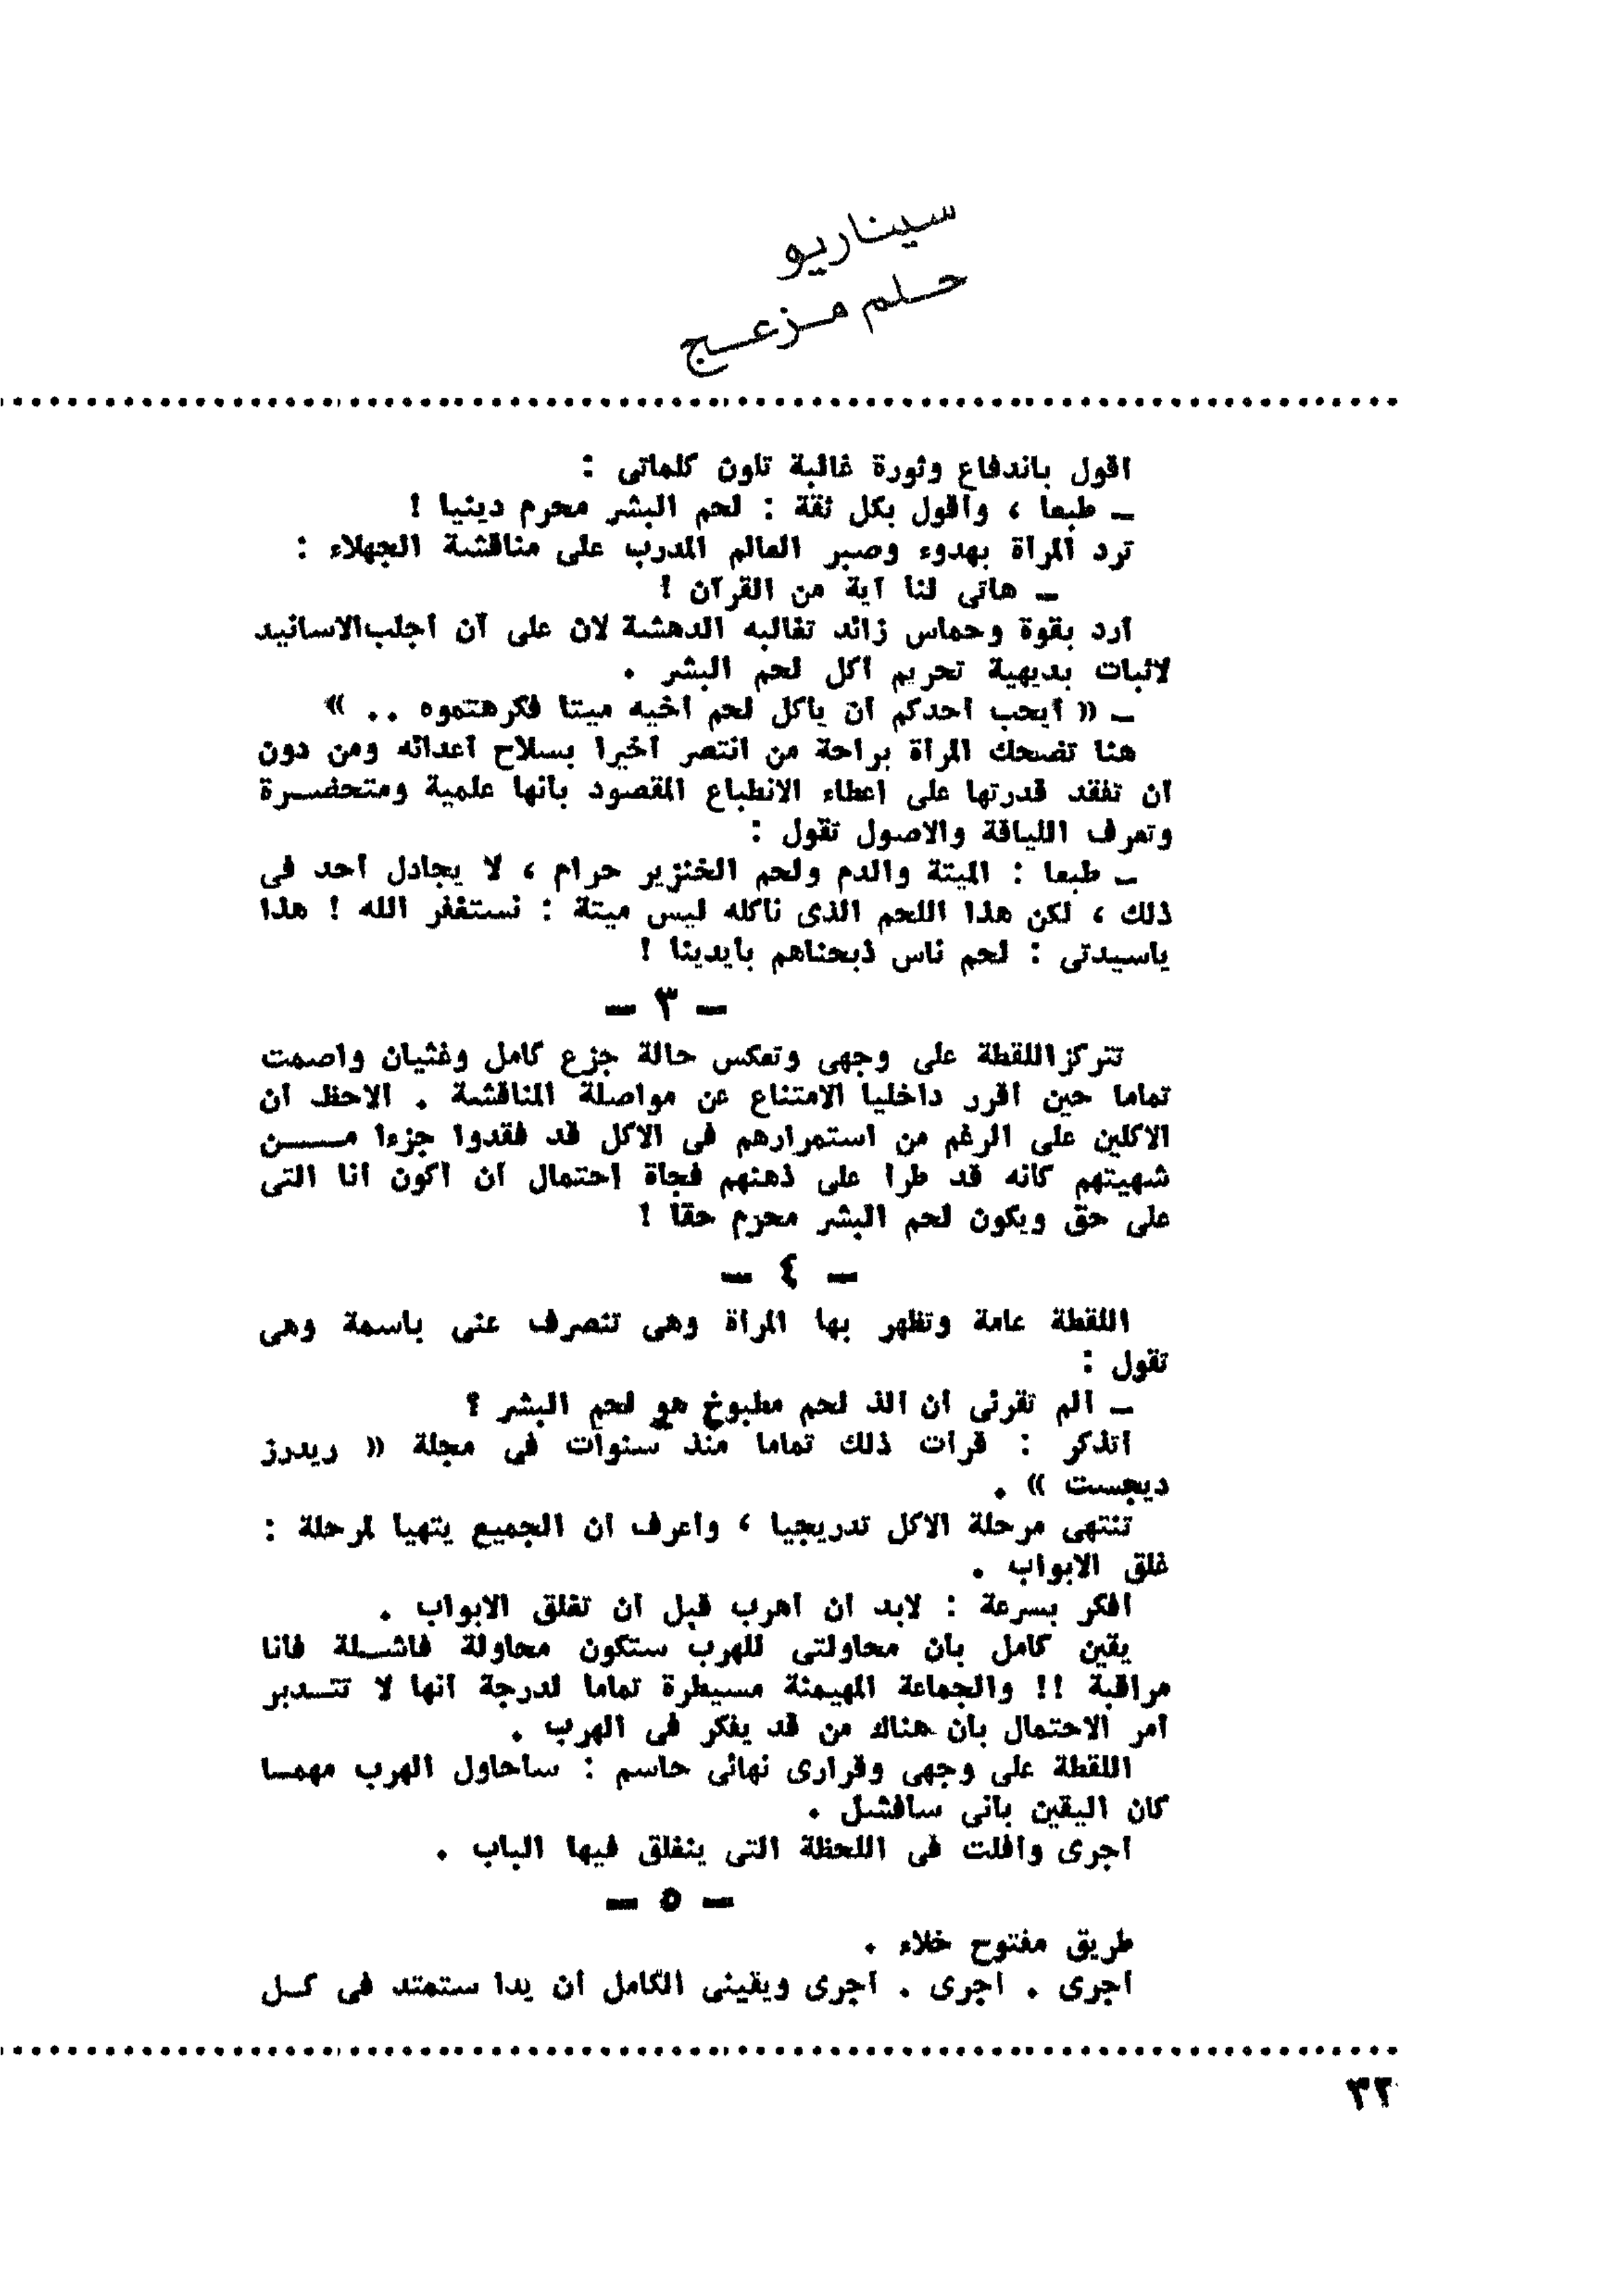 سيناريو
حلم مزعج
اقول باندفاع وثورة غالبة تلون كلماتى :
ـ طبعا ، وأقول بكل ثقة : لحم البشر محرم دينيا !
ترد المرأة بهدوء وصبر العالم المدرب على مناقشة الجهلاء :
ـ هاتى لنا آية من القرآن !
أرد بقوة وحماس زائد تغالبه الدهشة لان على أن أجلب الاسانيد
لاثبات بديهية تحريم أكل لحم البشر .
ـ « أيحب أحدكم أن يأكل لحم أخيه ميتا فكرهتموه .. »
هنا تضحك المرأة براحة من انتصر أخيرا بسلاح أعدائه ومن دون
أن تفقد قدرتها على اعطاء الانطباع المقصود بأنها علمية ومتحضرة
وتعرف اللياقة والاصول تقول :
ـ طبعا : الميتة والدم ولحم الخنزير حرام ، لا يجادل أحد فى
ذلك ، لكن هذا اللحم الذى نأكله ليس ميتة : نستغفر الله ! هذا
ياسيدتى : لحم ناس ذبحناهم بأيدينا !
ـ ٣ ـ
تتركز اللقطة على وجهى وتعكس حالة جزع كامل وغثيان وأصمت
تماما حين أقرر داخليا الامتناع عن مواصلة المناقشة . ألاحظ أن
الاكلين على الرغم من استمرارهم فى الاكل قد فقدوا جزءا مــــن
شهيتهم كأنه قد طرأ على ذهنهم فجأة احتمال أن أكون أنا التى
على حق ويكون لحم البشر محرم حقا !
ـ ٤ ـ
اللقطة عامة وتظهر بها المرأة وهى تنصرف عنى باسمة وهى
تقول :
ـ ألم تقرئى أن ألذ لحم مطبوخ هو لحم البشر ؟
أتذكر : قرأت ذلك تماما منذ سنوات فى مجلة « ريدرز
ديجست » .
تنتهى مرحلة الاكل تدريجيا ، وأعرف أن الجميع يتهيأ لمرحلة :
غلق الابواب .
أفكر بسرعة : لابد أن أهرب قبل أن تغلق الابواب .
يقين كامل بأن محاولتى للهرب ستكون محاولة فاشــلة فأنا
مراقبة !! والجماعة المهيمنة مسيطرة تماما لدرجة أنها لا تتــدبر
أمر الاحتمال بأن هناك من قد يفكر فى الهرب .
اللقطة على وجهى وقرارى نهائى حاسم : سأحاول الهرب مهمــا
كان اليقين بأنى سأفشل .
أجرى وأفلت فى اللحظة التى ينغلق فيها الباب .
ـ ٥ ـ
طريق مفتوح خلاء .
أجرى . أجرى . أجرى ويقينى الكامل أن يدا ستمتد فى كــل
٣٢